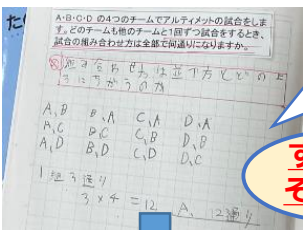 た
A・B・C・Dの4つのチームでアルティメットの試合をしま
す。どのチームも他のチームと1回ずつ試合をするとき、
試合の組み合わせ方は全部で何通りになりますか。
組み合わせ方は並べ方とどのよ
うにちがうのか
A、B B、A C、A D、A
A、C B、C C、B D、B
A、D B、D C、D D、C
1組3通り
3×4=12 A、12通り